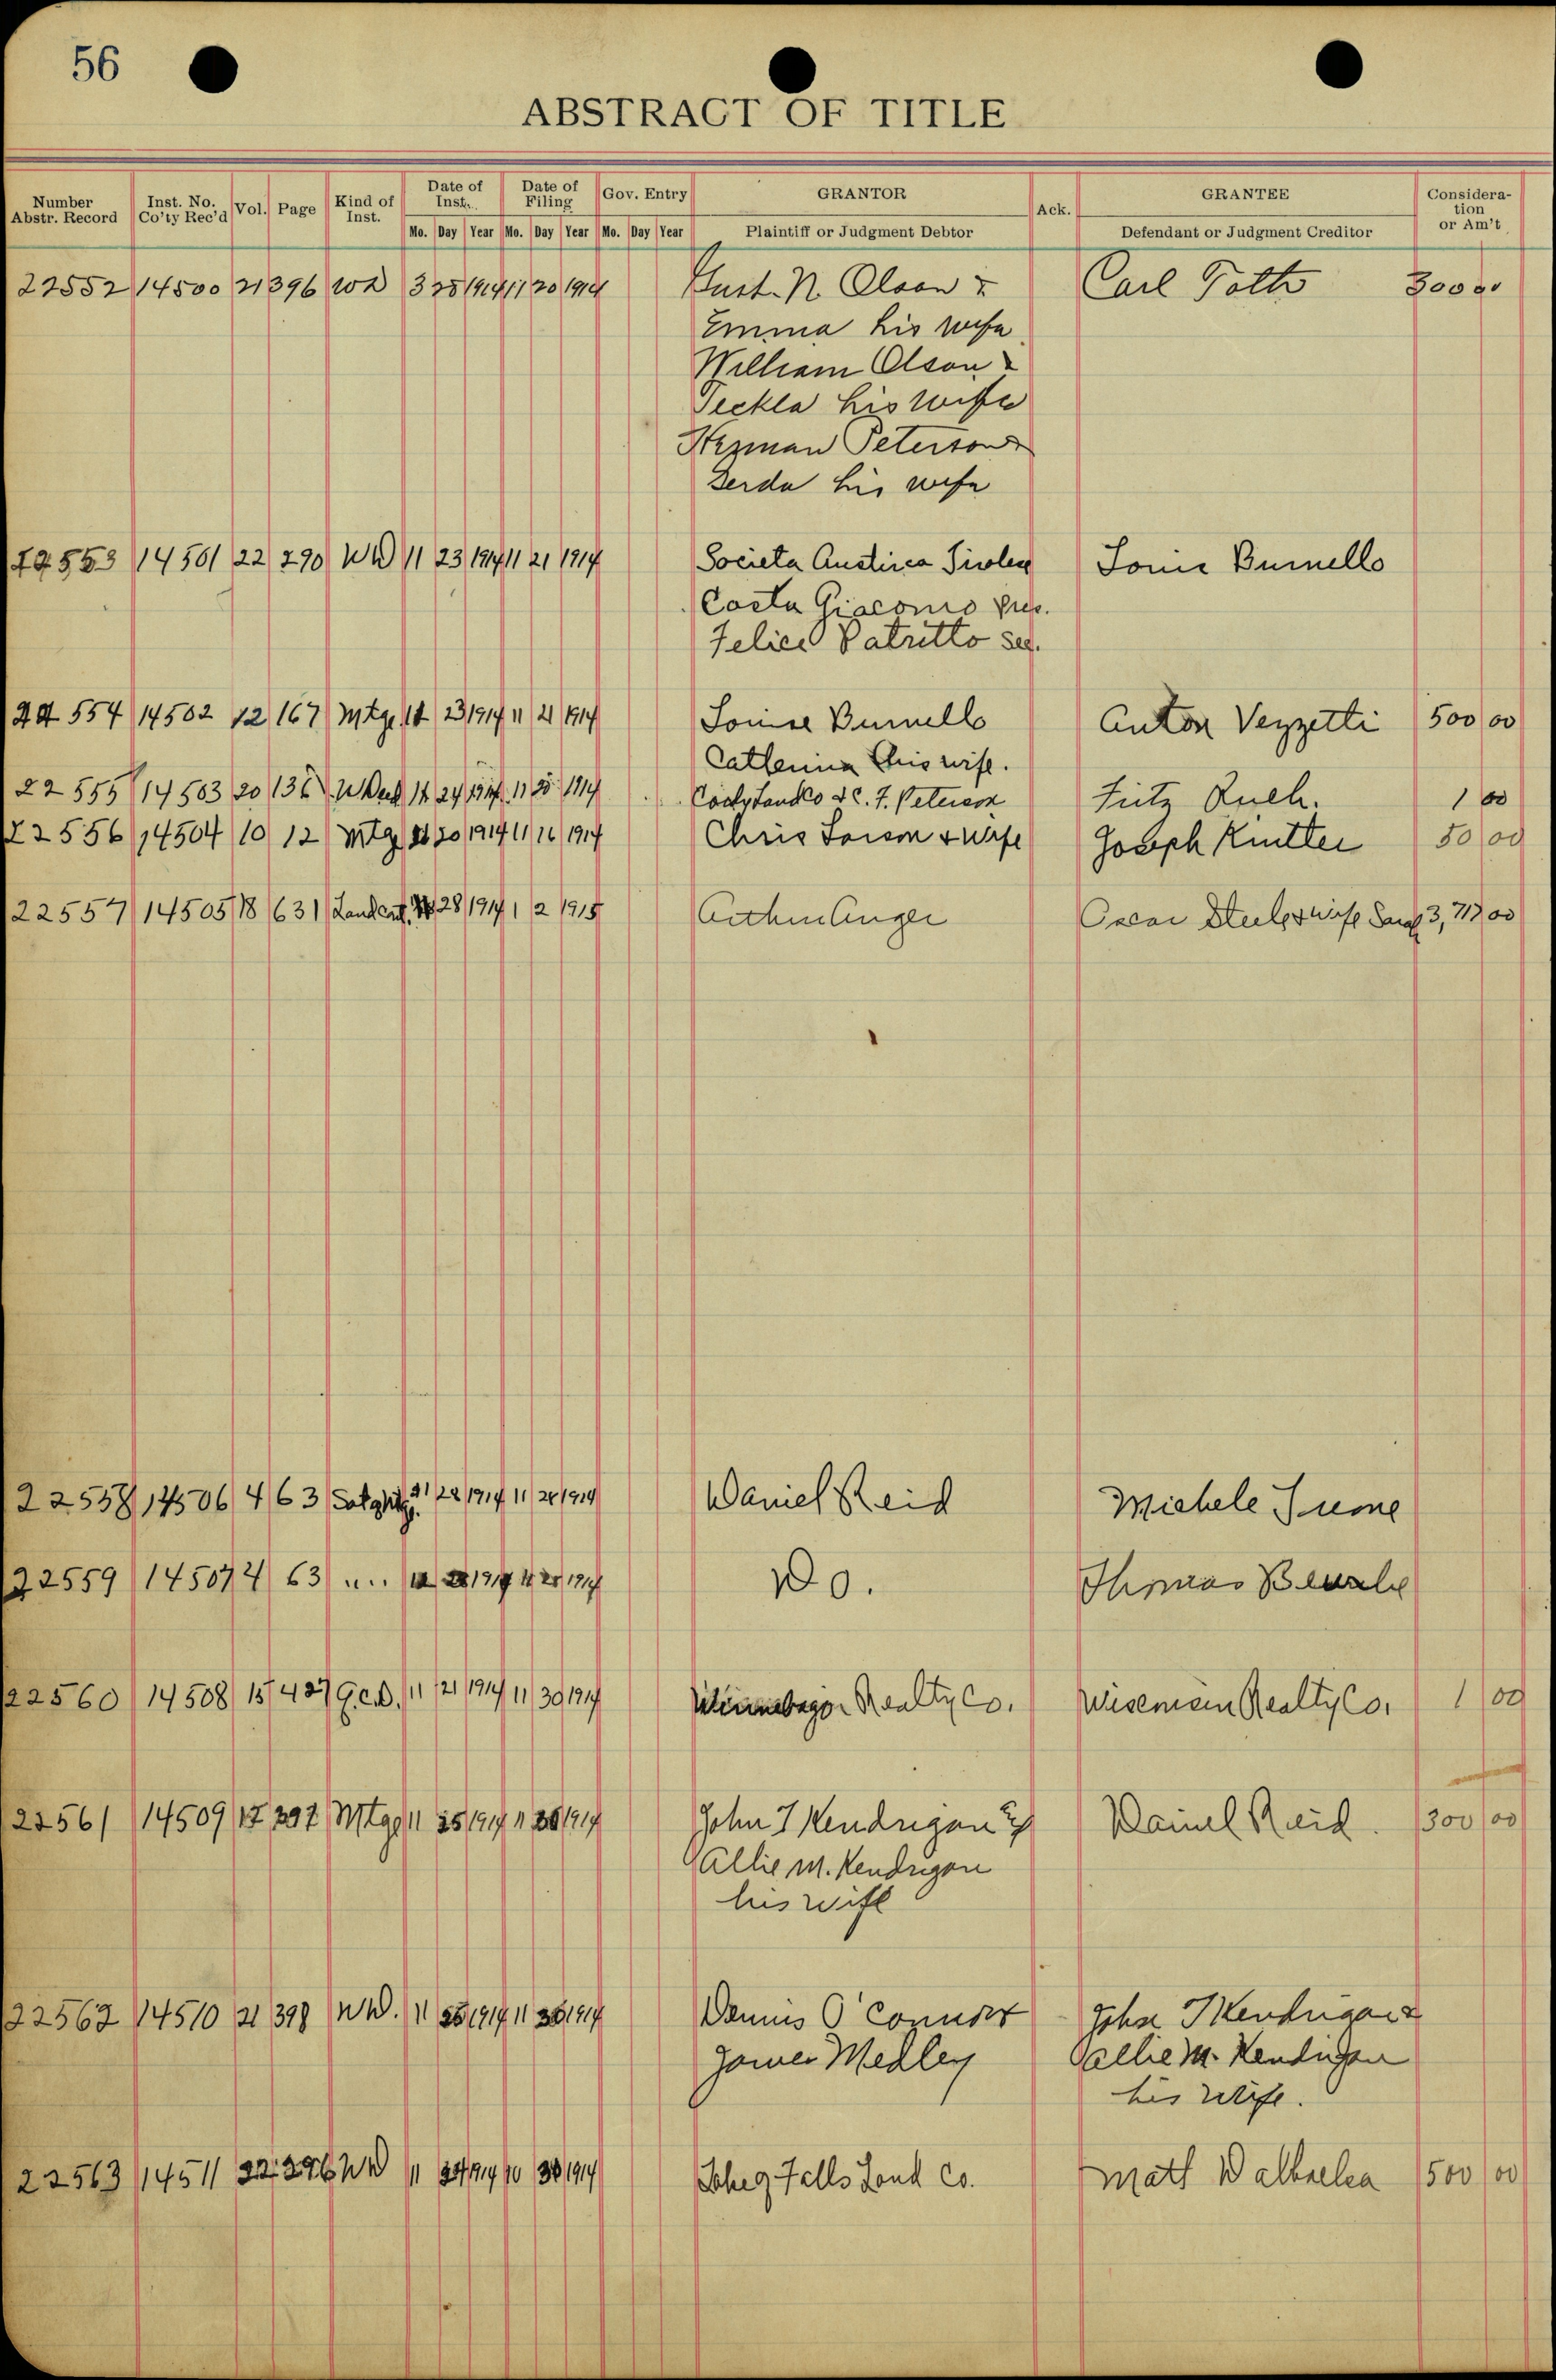 56
ABSTRACT OF TITLE
Number Abstr. Record Inst. No. Co'ty Rec'd Vol. Page Kind of Inst. Date of Inst. Date of Filing Gov. Entry GRANTOR Ack. GRANTEE Consideration or Am't
Mo. Day Year Mo. Day Year Mo. Day Year Plaintiff or Judgment Debtor Defendant or Judgment Creditor
22552 14500 21 396 WD 3 28 1914 11 20 1914 Gust. N. Olson & Carl Toth 300 00
Emma his wife
William Olson &
Teckla his wife
Herman Peterson &
Gerda his wife
22553 14501 22 290 WD 11 23 1914 11 21 1914 Societa Austirca Tirolese
Costa Giacomo Pres.
Felice Patritto sec.
22554 14502 12 167 Mtge 11 23 1914 11 21 1914 Anton Vezzetti 500 00
Catterina his wife.
22555 14503 20 136 W Deed 11 24 1914 11 25 1914 & C. F. Peterson Fritz 1 00
22556 14504 10 12 Mtg 20 1914 11 16 1914 Chris Larson & wife Joseph 50 00
22557 14505 18 631 Land cont. 28 1914 1 2 1915 Arthur Unger Oscar Steele & wife 3,717 00
22558 14506 4 63 Sat of Mtg. 11 28 1914 11 28 1914 Daniel Reid Michele
22559 14507 4 63 " " 1914 11 28 1914 Do. Thomas
22560 14508 15 427 Q.C.D. 11 21 1914 11 30 1914 Winnebago Realty Co. Wiseman Realty Co. 1 00
22561 14509 12 Mtge 11 25 1914 11 30 1914 John J Kendrigan & Daniel Reid. 300 00
Allie M. Kendrigan
his wife
22562 14510 21 398 WD. 11 25 1914 11 30 1914 Dennis O'Connor John J Kendrigan &
James Medley Allie M. Kendrigan
his wife.
22563 14511 22 296 WD 11 24 1914 10 30 1914 Falls Land Co. Matt 500 00